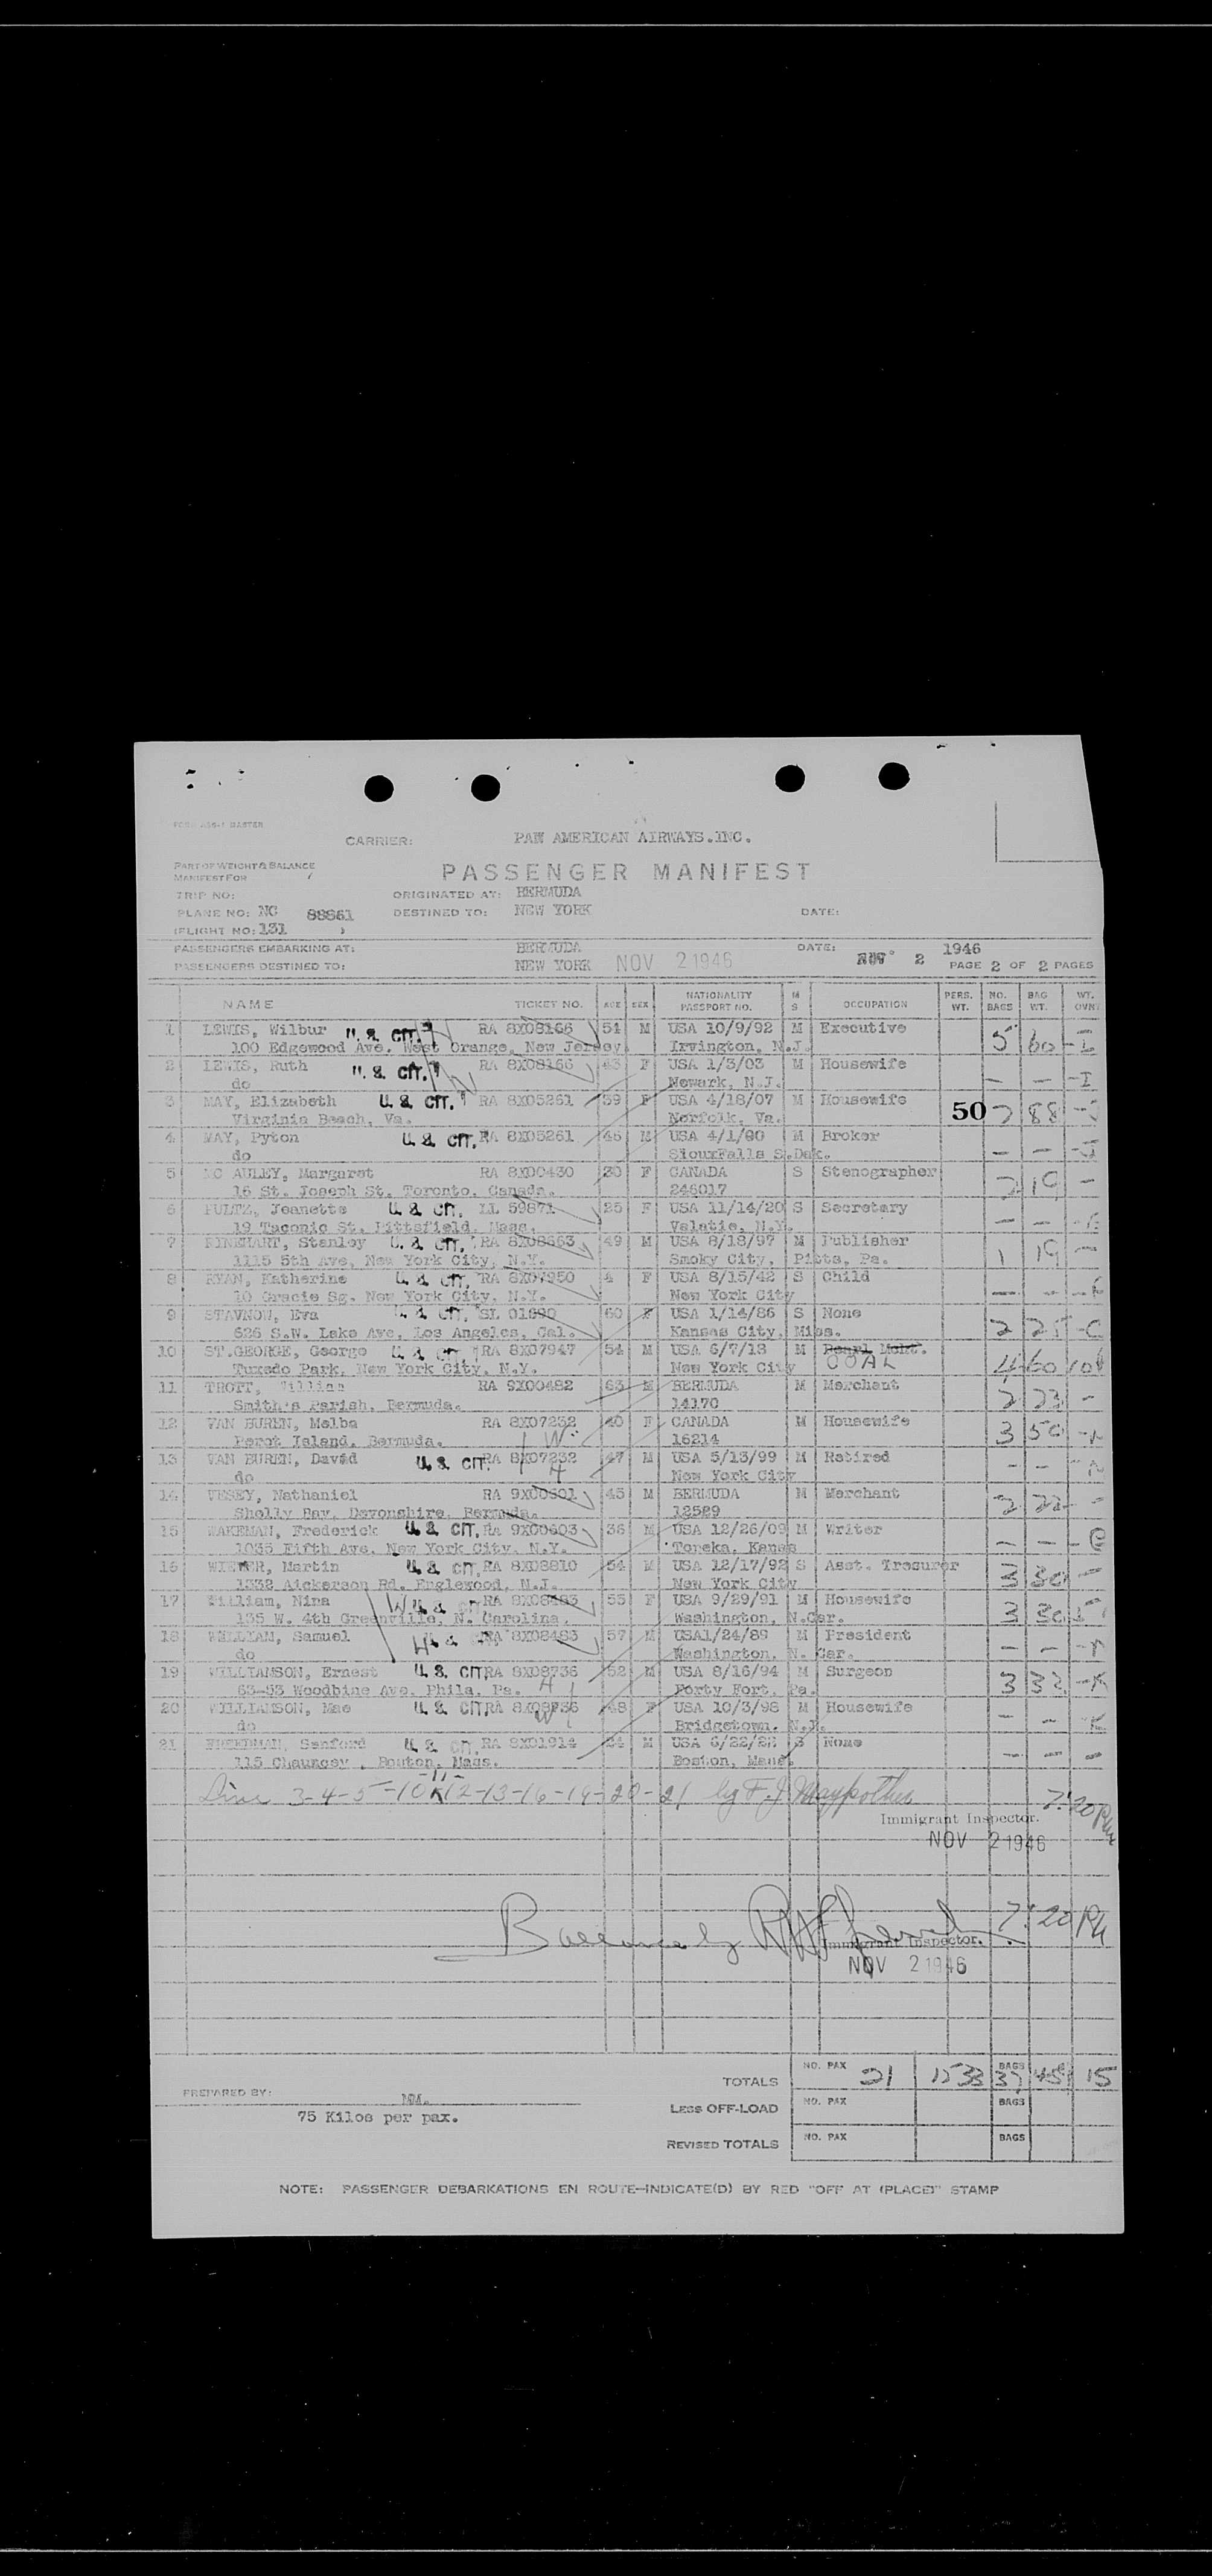 CARRIER: PAN AMERICAN AIRWAYS.INC.
PART OF WEIGHT & BALANCE
MANIFEST FOR
PASSENGER MANIFEST
TRIP NO: ORIGINATED AT: BERMUDA
PLANE NO: NC 88861 DESTINED TO: NEW YORK DATE:
(FLIGHT NO: 131 )
PASSENGERS EMBARKING AT: BERMUDA DATE: NOV 2 1946
PASSENGERS DESTINED TO: NEW YORK NOV 2 1946 PAGE 2 OF 2 PAGES
NAME TICKET NO. AGE SEX NATIONALITY PASSPORT NO. M S OCCUPATION PERS. WT. NO. BAGS BAG WT. WT.
1 LEWIS, Wilbur U. S. CIT. RA 8X08166 54 M USA 10/9/92 M Executive 5 60
100 Edgewood Ave. West Orange, New Jersey. Irvington, N.J.
2 LEWIS, Ruth U. S. CIT. RA 8X08166 43 F USA 1/3/03 M Housewife — —
do Newark, N.J.
3 MAY, Elizabeth U. S. CIT. RA 8X05261 39 F USA 4/18/07 M Housewife 50 7 88
Virginia Beach, Va. Norfolk, Va.
4 MAY, Pyton U. S. CIT. RA 8X05261 46 M USA 4/1/00 M Broker — —
do SiouxFalls S.Dak.
5 MC AULEY, Margaret RA 8X00430 30 F CANADA S Stenographer 2 19 -
16 St. Joseph St. Toronto, Canada. 246017
6 FULTZ, Jeanette U. S. CIT. LL 59871 25 F USA 11/14/20 S Secretary — —
19 Taconic St. Pittsfield, Mass. Valatie, N.Y.
7 RINEHART, Stanley U. S. CIT. RA 8X08663 49 M USA 8/18/97 M Publisher 1 19 —
1115 5th Ave, New York City, N.Y. Smoky City, Pitts, Pa.
8 RYAN, Katherine U. S. CIT. RA 8X07950 4 F USA 8/15/42 S Child — —
10 Gracie Sq. New York City, N.Y. New York City
9 STAVNOW, Eva U. S. CIT. SL 01690 60 F USA 1/14/86 S None 2 25 -C
626 S.W. Lake Ave, Los Angeles, Cal. Kansas City, Miss.
10 ST.GEORGE, George U. S. CIT. RA 8X07947 54 M USA 6/7/18 M Pearl Mcht. 4 60
Tuxedo Park, New York City, N.Y. New York City COAL
11 TROTT, William RA 9X00482 63 M BERMUDA M Merchant 2 23 -
Smith's Parish, Bermuda. 14170
12 VAN BUREN, Melba RA 8X07232 40 F CANADA M Housewife 3 50
Perot Island, Bermuda. W 16214
13 VAN BUREN, David U. S. CIT. RA 8X07232 47 M USA 5/13/99 M Retired - -
do H New York City
14 VESEY, Nathaniel RA 9X00601 45 M BERMUDA M Merchant 2 22 -
Shelly Bay, Devonshire, Bermuda. 12589
15 WAKEMAN, Frederick U. S. CIT. RA 9X00603 36 M USA 12/26/09 M Writer — —
1035 Fifth Ave. New York City, N.Y. Topeka, Kansa
16 WIENER, Martin U. S. CIT. RA 8X08810 54 M USA 12/17/92 S Asst. Tresurer 3 30 —
1332 Dickerson Rd. Englewood, N.J. New York City
17 William, Nina W U. S. RA 8X08483 55 F USA 9/29/91 M Housewife 3 30
135 W. 4th Greenville, N. Carolina. Washington, N.Car.
18 WILLIAM, Samuel H RA 8X08483 57 M USA1/24/89 M President — —
do Washington, N. Car.
19 WILLIAMSON, Ernest U. S. CIT. RA 8X08736 52 M USA 8/16/94 M Surgeon 3 32 -K
63-53 Woodbine Ave. Phila, Pa. H Forty Fort, Pa.
20 WILLIAMSON, Mae U. S. CIT. RA 8X08736 48 F USA 10/3/98 M Housewife - - -K
do W Bridgetown, N.J.
21 FREEDMAN, Sanford U. S. CIT. RA 8X01914 24 M USA 6/22/22 S None — — —
115 Chauncey , Bouton, Mass. Boston, Mass.
-11-
Line 3-4-5-10-12-13-16-19-20-21 by F. J. 7:20 PM
Immigrant Inspector.
NOV 2 1946
7:20 PM
Immigrant Inspector.
NOV 2 1946
TOTALS NO. PAX 21 1533 BAGS 37 451 15
PREPARED BY:
75 Kilos per pax.
LESS OFF-LOAD NO. PAX BAGS
REVISED TOTALS NO. PAX BAGS
NOTE: PASSENGER DEBARKATIONS EN ROUTE—INDICATE(D) BY RED "OFF AT (PLACE)" STAMP